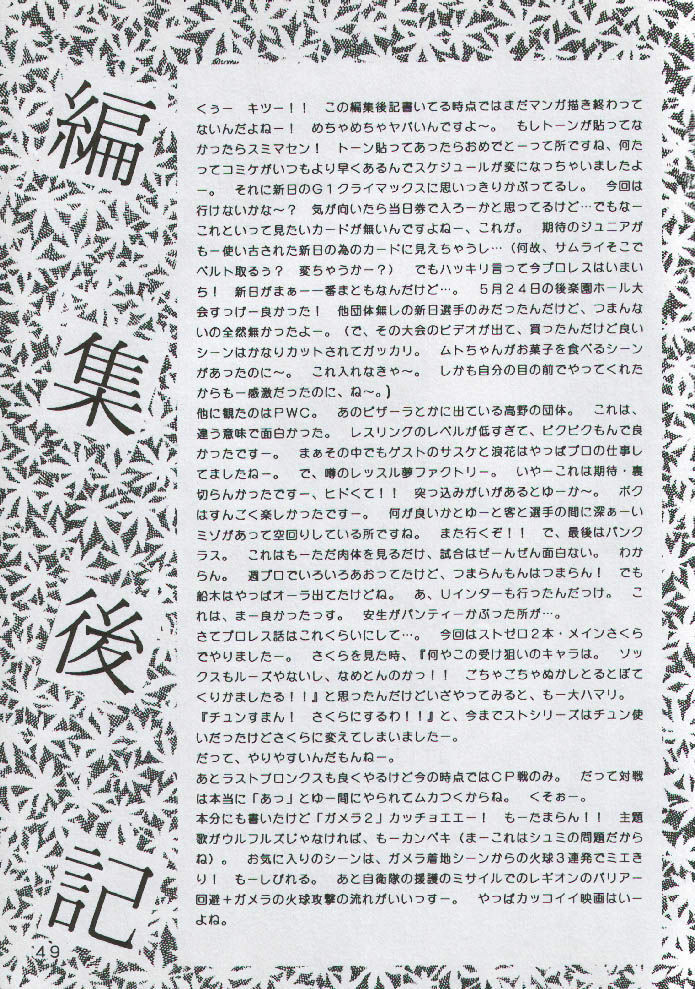 編集後記
くぅー　キツー！！　この編集後記書いてる時点ではまだマンガ描き終わって
ないんだよねー！　めちゃめちゃヤバいんですよ〜。　もしトーンが貼ってな
かったらスミマセン！　トーン貼ってあったらおめでとーって所ですね、何た
ってコミケがいつもより早くあるんでスケジュールが変になっちゃいましたよ
ー。　それに新日のＧ１クライマックスに思いっきりかぶってるし。　今回は
行けないかな〜？　気が向いたら当日券で入ろーかと思ってるけど…でもなー
これといって見たいカードが無いんですよねー、これが。　期待のジュニアが
もー使い古された新日の為のカードに見えちゃうし…（何故、サムライそこで
ベルト取るぅ？　変ちゃうかー？）　でもハッキリ言って今プロレスはいまい
ち！　新日がまぁー一番まともなんだけど…。　５月２４日の後楽園ホール大
会すっげー良かった！　他団体無しの新日選手のみだったんだけど、つまんな
いの全然無かったよー。（で、その大会のビデオが出て、買ったんだけど良い
シーンはかなりカットされてガッカリ。　ムトちゃんがお菓子を食べるシーン
があったのに〜。　これ入れなきゃ〜。　しかも自分の目の前でやってくれた
からも一感激だったのに、ね〜。）
他に観たのはＰＷＣ。　あのピザーラとかに出ている高野の団体。　これは、
違う意味で面白かった。　レスリングのレベルが低すぎて、ピクピクもんで良
かったですー。　まぁその中でもゲストのサスケと浪花はやっぱプロの仕事し
てましたねー。　で、噂のレッスル夢ファクトリー。　いやーこれは期待・裏
切らんかったですー、ヒドくて！！　突っ込みがいがあるとゆーか〜。　ボク
はすんごく楽しかったですー。　何が良いかとゆーと客と選手の間に深ぁーい
ミゾがあって空回りしている所ですね。　また行くぞ！！　で、最後はパンク
ラス。　これはもーただ肉体を見るだけ、試合はぜーんぜん面白ない。　わか
らん。　週プロでいろいろあおってたけど、つまらんもんはつまらん！　でも
船木はやっぱオーラ出てたけどね。　あ、Ｕインターも行ったんだっけ。　こ
れは、まー良かったっす。　安生がパンティーかぶった所が…。
さてプロレス話はこれくらいにして…。　今回はストゼロ２本・メインさくら
でやりましたー。　さくらを見た時、『何やこの受け狙いのキャラは。　ソッ
クスもルーズやないし、なめとんのかっ！！　ごちゃごちゃぬかしとるとぼて
くりかましたる！！』と思ったんだけどいざやってみると、もー大ハマリ。
『チュンすまん！　さくらにするわ！！』と、今までストシリーズはチュン使
いだったけどさくらに変えてしまいましたー。
だって、やりやすいんだもんねー。
あとラストブロンクスも良くやるけど今の時点ではＣＰ戦のみ。　だって対戦
は本当に「あっ」とゆー間にやられてムカつくからね。　くそぉー。
本分にも書いたけど「ガメラ２」カッチョエエー！　もーたまらん！！　主題
歌がウルフルズじゃなければ、もーカンペキ（まーこれはシュミの問題だから
ね）。　お気に入りのシーンは、ガメラ着地シーンからの火球３連発でミエき
り！　もーしびれる。　あと自衛隊の援護のミサイルでのレギオンのバリアー
回避＋ガメラの火球攻撃の流れがいいっすー。　やっぱカッコイイ映画はいー
よね。
49